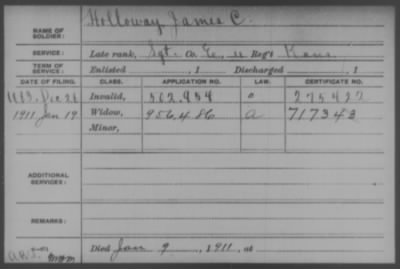 Holloway, James C.
NAME OF SOLDIER:
SERVICE: Late rank, Sgt. Co. E, 11 Reg't Kans
TERM OF SERVICE: Enlisted , 1 Discharged , 1
DATE OF FILING. CLASS. APPLICATION NO. LAW. CERTIFICATE NO.
Dec 26 Invalid, 562.954 275422
1911 Jan 19 Widow, 956.486 a 717343
Minor,
ADDITIONAL SERVICES:
REMARKS:
Died Jan 9, 1911, at